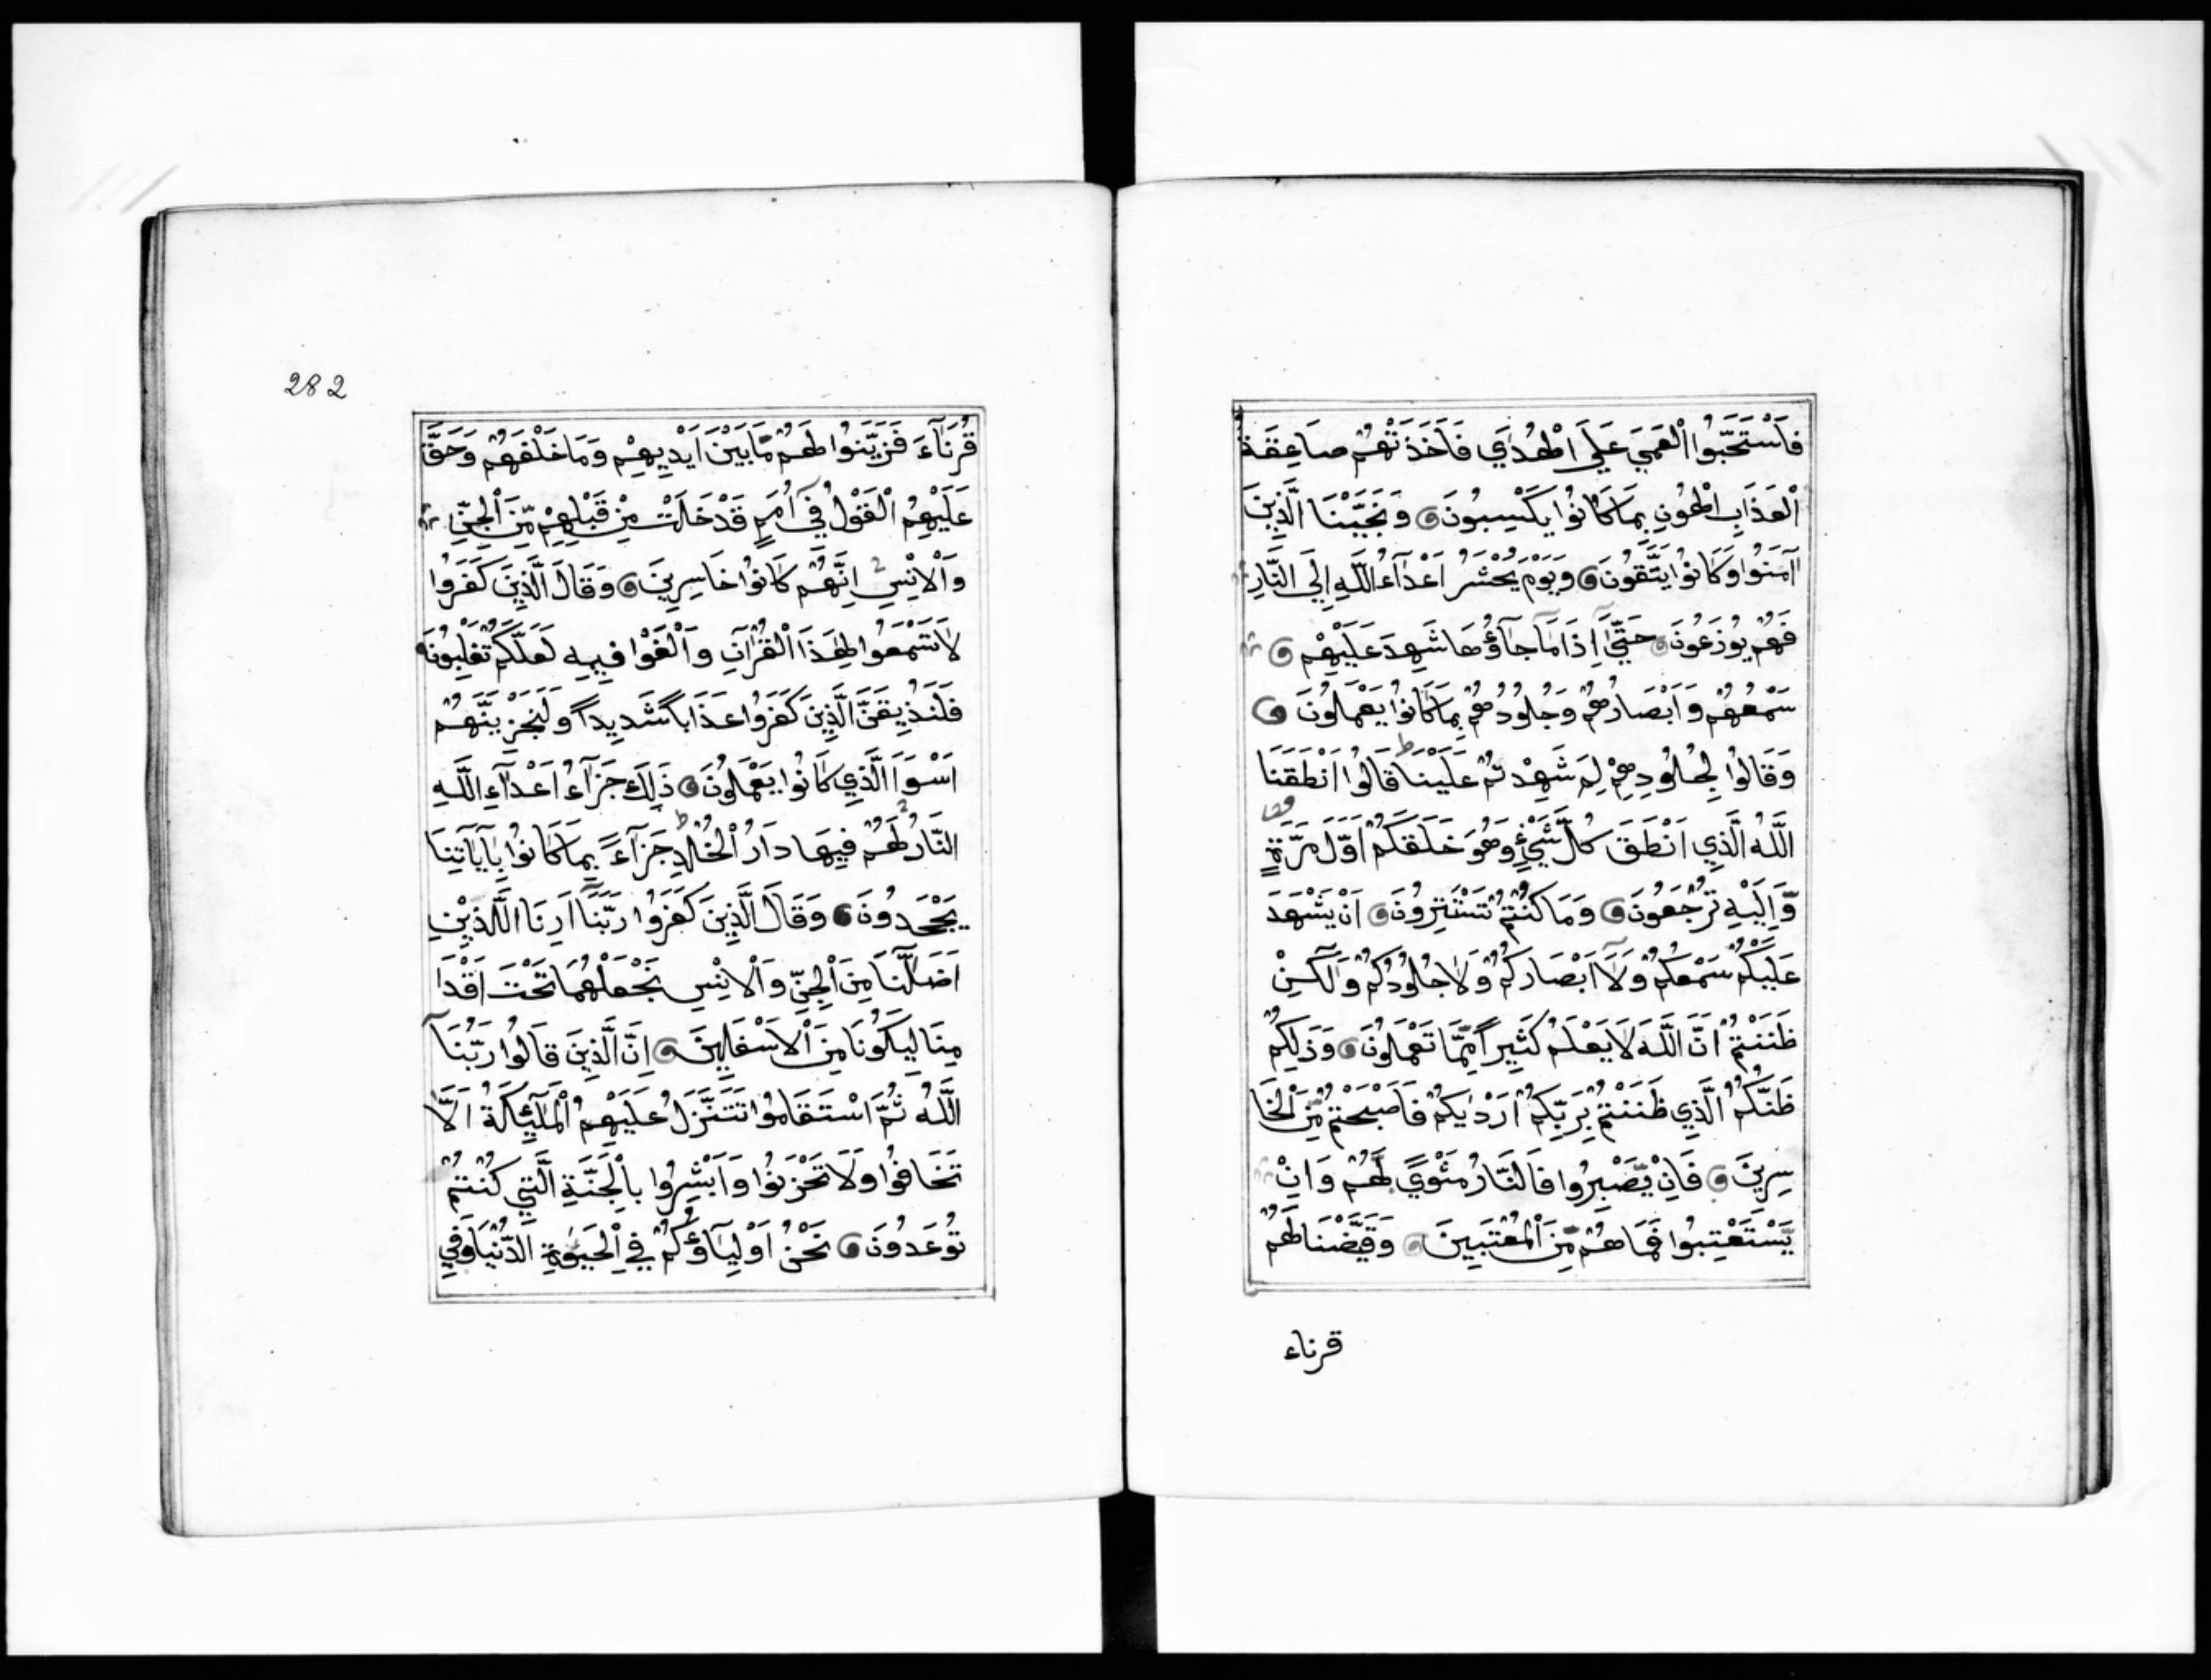 فَاَسْتَحَبُّوا الْعَمَيَ عَلَي الْهُدَيٰ فَاَخَذَتْهُمْ صَاعِقَةُ
الْعَذَابِ الْهُونِ بِمَا كَانُوْا يَكْسِبُونَ وَنَجَّيْنَا الَّذِينَ
آمَنُوا وَكَانُوْا يَتَّقُونَ وَيَوْمَ يُحْشَرُ اَعْدَآءُ اللّٰهِ اِلَي النَّارِ
فَهُمْ يُوْزَعُونَ حَتَّيٰٓ اِذَا مَا جَآؤُهَا شَهِدَ عَلَيْهِمْ
سَمْعُهُمْ وَاَبْصَارُهُمْ وَجُلُودُهُمْ بِمَا كَانُوْا يَعْمَلُونَ
وَقَالُوْا لِجُلُودِهِمْ لِمَ شَهِدْتُمْ عَلَيْنَا ط قَالُوْا اَنْطَقَنَا
اللّٰهُ الَّذِي اَنْطَقَ كُلَّ شَيْءٍ وَهُوَ خَلَقَكُمْ اَوَّلَ مَرَّةٍ
وَّاِلَيْهِ تُرْجَعُونَ وَمَا كُنْتُمْ تَسْتَتِرُونَ اَنْ يَشْهَدَ
عَلَيْكُمْ سَمْعُكُمْ وَلَآ اَبْصَارُكُمْ وَلَا جُلُودُكُمْ وَلٰكِنْ
ظَنَنْتُمْ اَنَّ اللّٰهَ لَا يَعْلَمُ كَثِيرًا مِّمَّا تَعْمَلُونَ وَذَلِكُمْ
ظَنُّكُمُ الَّذِي ظَنَنْتُمْ بِرَبِّكُمْ اَرْدٰيكُمْ فَاَصْبَحْتُمْ مِّنَ الْخَا
سِرِينَ فَاِنْ يَّصْبِرُوا فَالنَّارُ مَثْوًي لَّهُمْ وَاِنْ
يَّسْتَعْتِبُوا فَمَا هُمْ مِّنَ الْمُعْتَبِينَ وَقَيَّضْنَا لَهُمْ
قرناء
282
قُرَنَآءَ فَزَيَّنُوا لَهُمْ مَّا بَيْنَ اَيْدِيهِمْ وَمَا خَلْفَهُمْ وَحَقَّ
عَلَيْهِمُ الْقَوْلُ فِيٓ اُمَمٍ قَدْ خَلَتْ مِنْ قَبْلِهِمْ مِّنَ الْجِنِّ
وَالْاِنْسِ اِنَّهُمْ كَانُوْا خَاسِرِينَ وَقَالَ الَّذِينَ كَفَرُوا
لَا تَسْمَعُوا لِهَذَا الْقُرْآنِ وَالْغَوْا فِيهِ لَعَلَّكُمْ تَغْلِبُونَ
فَلَنُذِيقَنَّ الَّذِينَ كَفَرُوا عَذَابًا شَدِيدًا وَلَنَجْزِيَنَّهُمْ
اَسْوَاَ الَّذِي كَانُوْا يَعْمَلُونَ ذَلِكَ جَزَآءُ اَعْدَآءِ اللّٰهِ
النَّارُ لَهُمْ فِيهَا دَارُ الْخُلْدِ ط جَزَآءً بِمَا كَانُوْا بِآيَاتِنَا
يَجْحَدُونَ وَقَالَ الَّذِينَ كَفَرُوا رَبَّنَآ اَرِنَا الَّلذَيْنِ
اَضَلّٰنَا مِنَ الْجِنِّ وَالْاِنْسِ نَجْعَلْهُمَا تَحْتَ اَقْدَا
مِنَا لِيَكُونَا مِنَ الْاَسْفَلِينَ اِنَّ الَّذِينَ قَالُوْا رَبُّنَا
اللّٰهُ ثُمَّ اسْتَقَامُوْا تَتَنَزَّلُ عَلَيْهِمُ الْمَلٰٓئِكَةُ اَلَّا
تَخَافُوا وَلَا تَحْزَنُوْا وَاَبْشِرُوا بِالْجَنَّةِ الَّتِي كُنْتُمْ
تُوْعَدُونَ نَحْنُ اَوْلِيَآؤُكُمْ فِي الْحَيٰوةِ الدُّنْيَا وَفِي